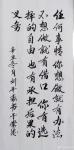 任何事情你想做就有办法
不想做就有借口你有选
择的自由也有承担后果的
义务